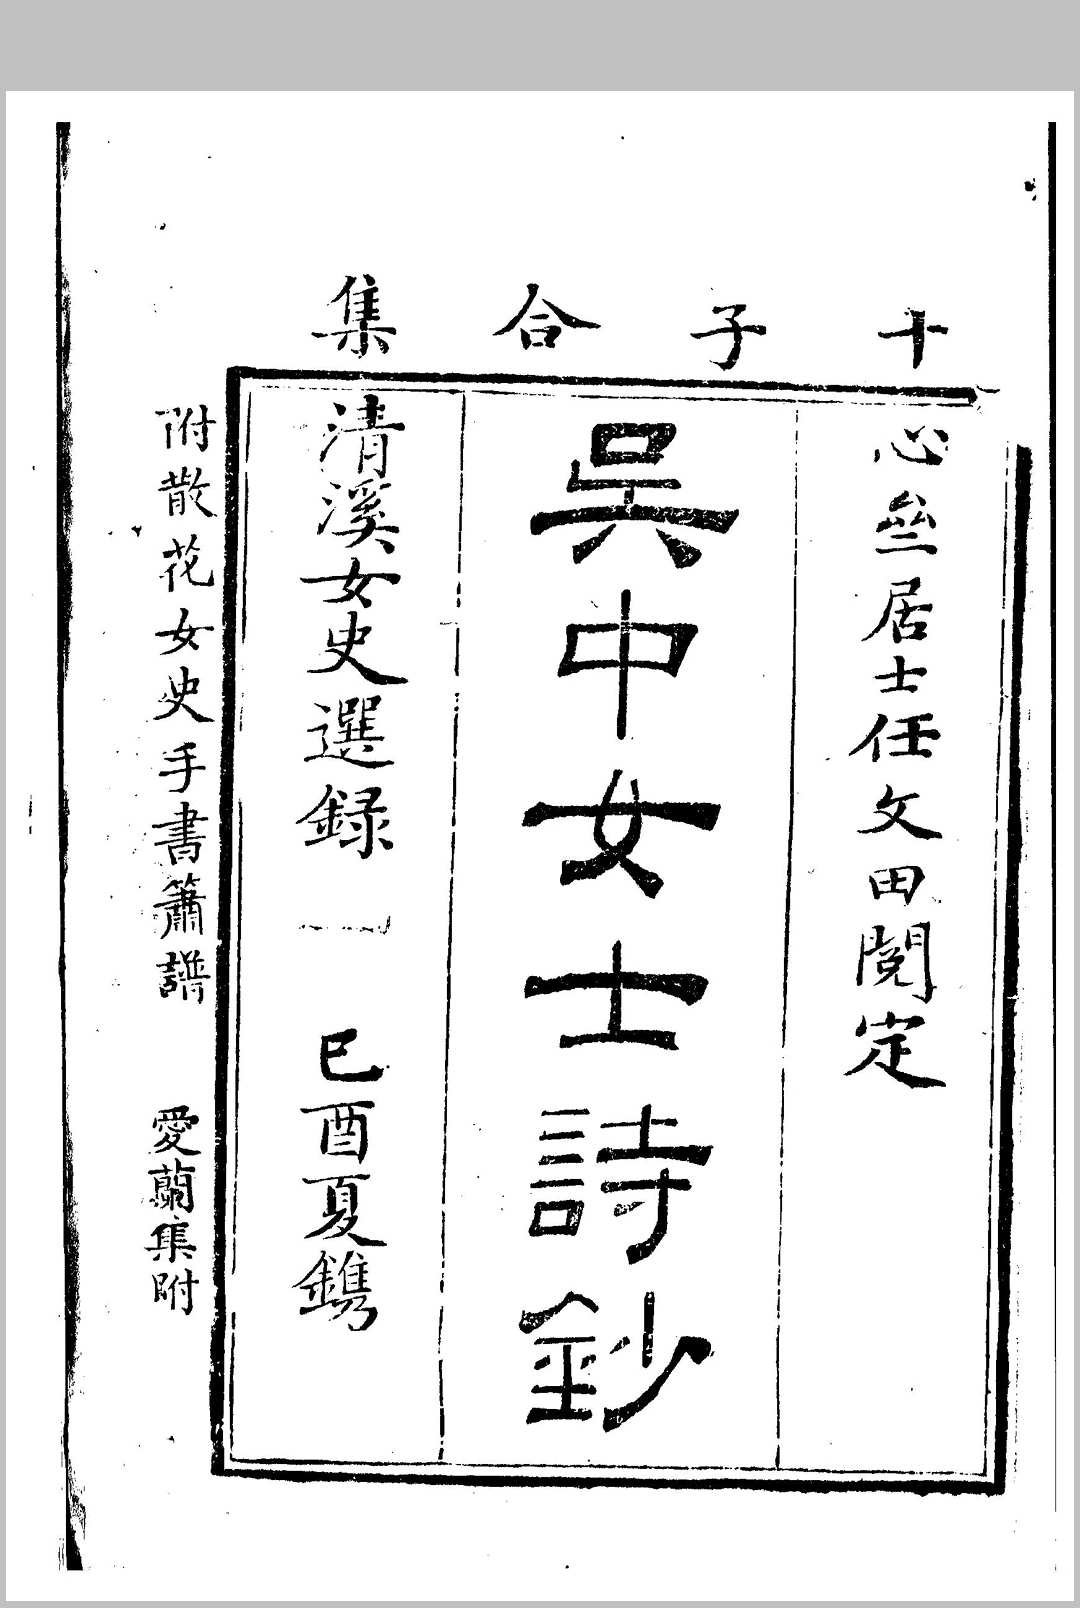 十子合集
心齋居士任文田閱定
吳中女士詩鈔
清溪女史選錄　己酉夏鐫
附散花女史手書簫譜　愛蘭集附